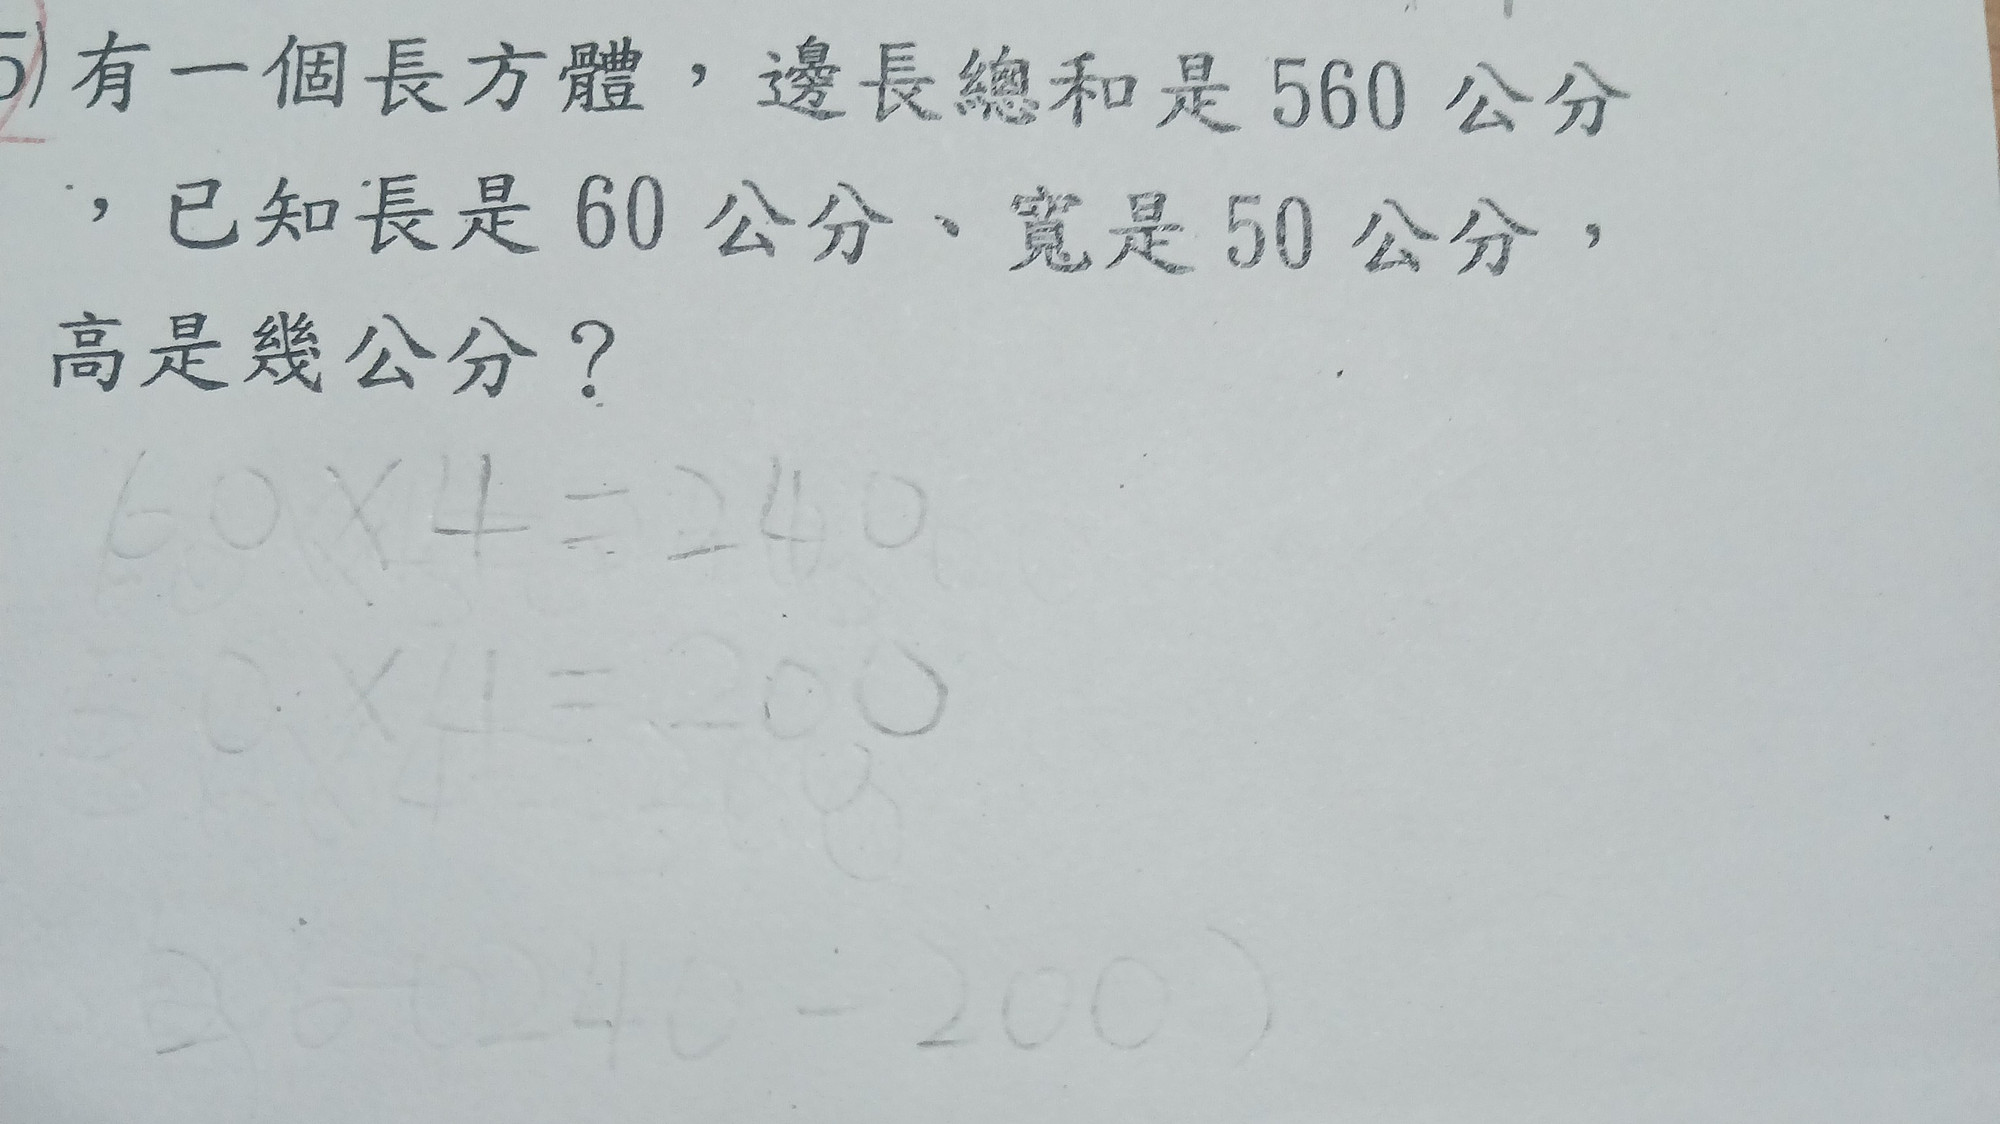 5) 有一個長方體，邊長總和是 560 公分
，已知長是 60 公分、寬是 50 公分，
高是幾公分？
60×4=240
50×4=200
(240-200)